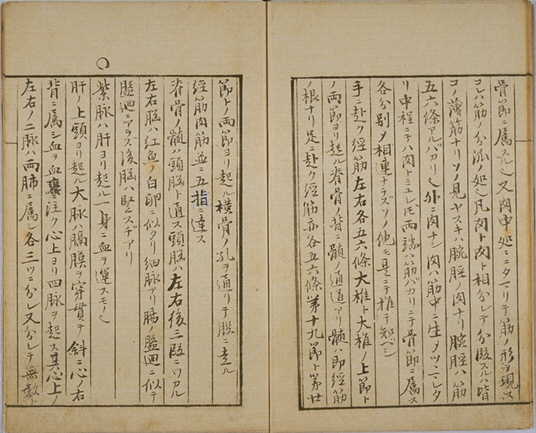 骨節ニ属ス又肉中処ニアツマリテ筋ノ形ヲ現ハス
コレハ筋ノ分派ノ処也凡肉ト肉ト相分レテ分股スルハ皆
コノ薄筋ナリソノ見ヤスキハ腕脛ノ肉ナリ腕脛ハ筋
五六條アルバカリニテ外ニ肉ナシ肉ハ筋中ニ生メツニシタ
リ中程ニテハ肉トミユレ𪜈両端ハ筋バカリニテ骨節ニ属ス
各分別〆相連ナラズソノ他モ是ニテ推テ知ベシ
手ニ赴ク経筋左右各五六條大椎ト大椎ノ上節ト
ノ両節ヨリ起ル脊骨ノ内ノ髄ノ通道アリ髄ハ即経筋
ノ根ナリ足ニ赴ク経筋亦各五六條第十九節ト第廿
節トノ両節ヨリ起ル横骨ノ孔ヲ通リテ股ニ走ル
経筋肉筋血ニ五指ニ達ス
脊骨ノ髄ハ頭脳ト通ス頭脳ハ左右後三段ニワカル
左右脳ハ紅血ノ白卵ニ似タリ細脉アリ腸ノ盤廻ニ似テ
盤廻ニアラズ後脳ハ堅スヂアリ
紫脉ハ肝ヨリ起ル一身ニ血ヲ運スモノ也
肝ノ上頭ヨリ起ル大脉ハ膈膜ヲ穿貫テ斜ニ心ノ右
背ニ属シ血ヲ血嚢ニ注ク心上ヨリ四脉ヲ起ス其心上
左右ノ二脉ハ両肺ニ属シ各三ツニ分レ又分レテ無数ト